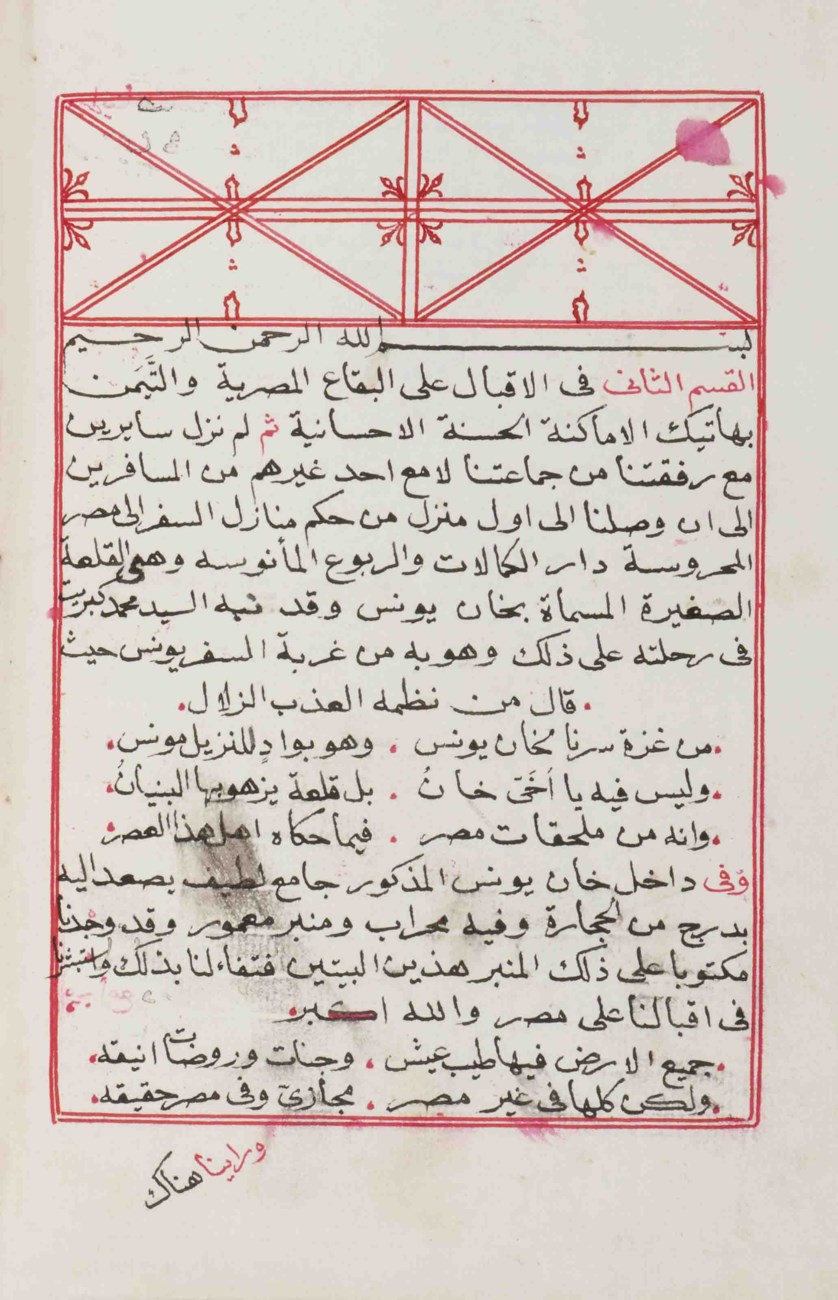 بسم الله الرحمن الرحيم
القسم الثانى فى الاقبال على البقاع المصرية والتَّيَمن
بهاتيك الاماكنة الحسنة الاحسانية ثم لم نزل سايرين
مع رفقتنا من جماعتنا لا مع احد غيرهم من المسافرين
الى ان وصلنا الى اول منزل من حكم منازل السفر الى مصر
المحروسة دار الكمالات والربوع المأنوسه وهى القلعة
الصغيرة المسماة بخان يونس وقد نبه السيد محمد كبريت
فى رحلته على ذلك وهو به من غربة السفر يونس حيث
قال من نظمه العذب الزلال.
من غزة سرنا لخان يونس . وهو بوادٍ للنزيل مونس.
وليس فيه يا اُخَىّ خانُ . بل قلعة يزهو بها البنيانُ.
وانه من ملحقات مصر . فيما حكاه اهل هذا العصر
وفى داخل خان يونس المذكور جامع لطيف يصعد اليه
بدرج من الحجارة وفيه محراب ومنبر معمور وقد وجدنا
مكتوبا على ذلك المنبر هذين البيتين فتفاءلنا بذلك واستبشرنا
فى اقبالنا على مصر والله اكبر.
جميع الارض فيها طيب عيش . وجنات وروضات انيقه.
ولكن كلها فى غير مصر . مجازىّ وفى مصر حقيقه.
وراينا هناك